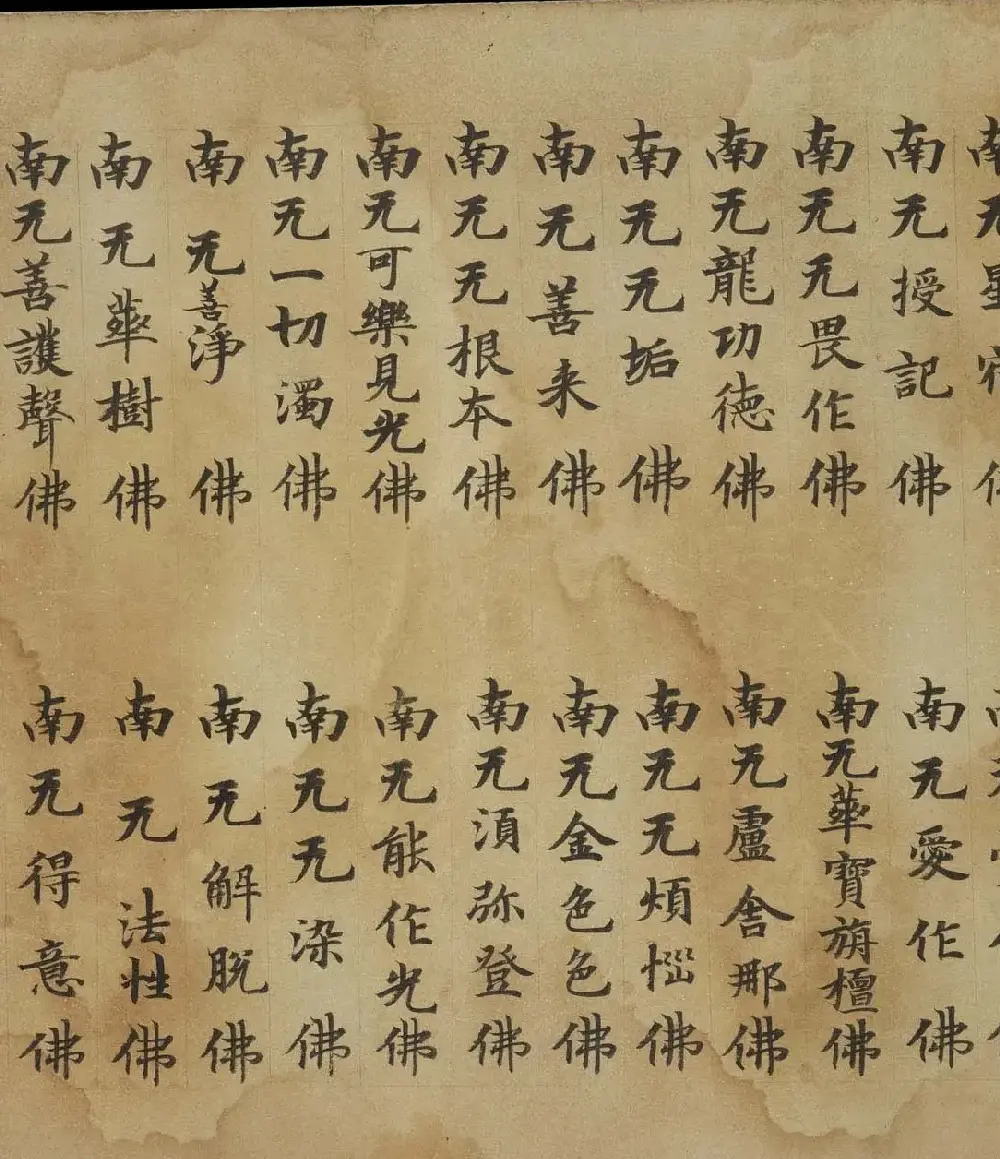 南无星宿佛
南无授記佛
南无愛作佛
南无无畏作佛
南无華寶旃檀佛
南无龍功德佛
南无盧舍那佛
南无无垢佛
南无无煩惱佛
南无善来佛
南无金色色佛
南无无根本佛
南无須弥登佛
南无可樂見光佛
南无能作光佛
南无一切濁佛
南无无染佛
南无善淨佛
南无解脫佛
南无華樹佛
南无法性佛
南无善護聲佛
南无得意佛